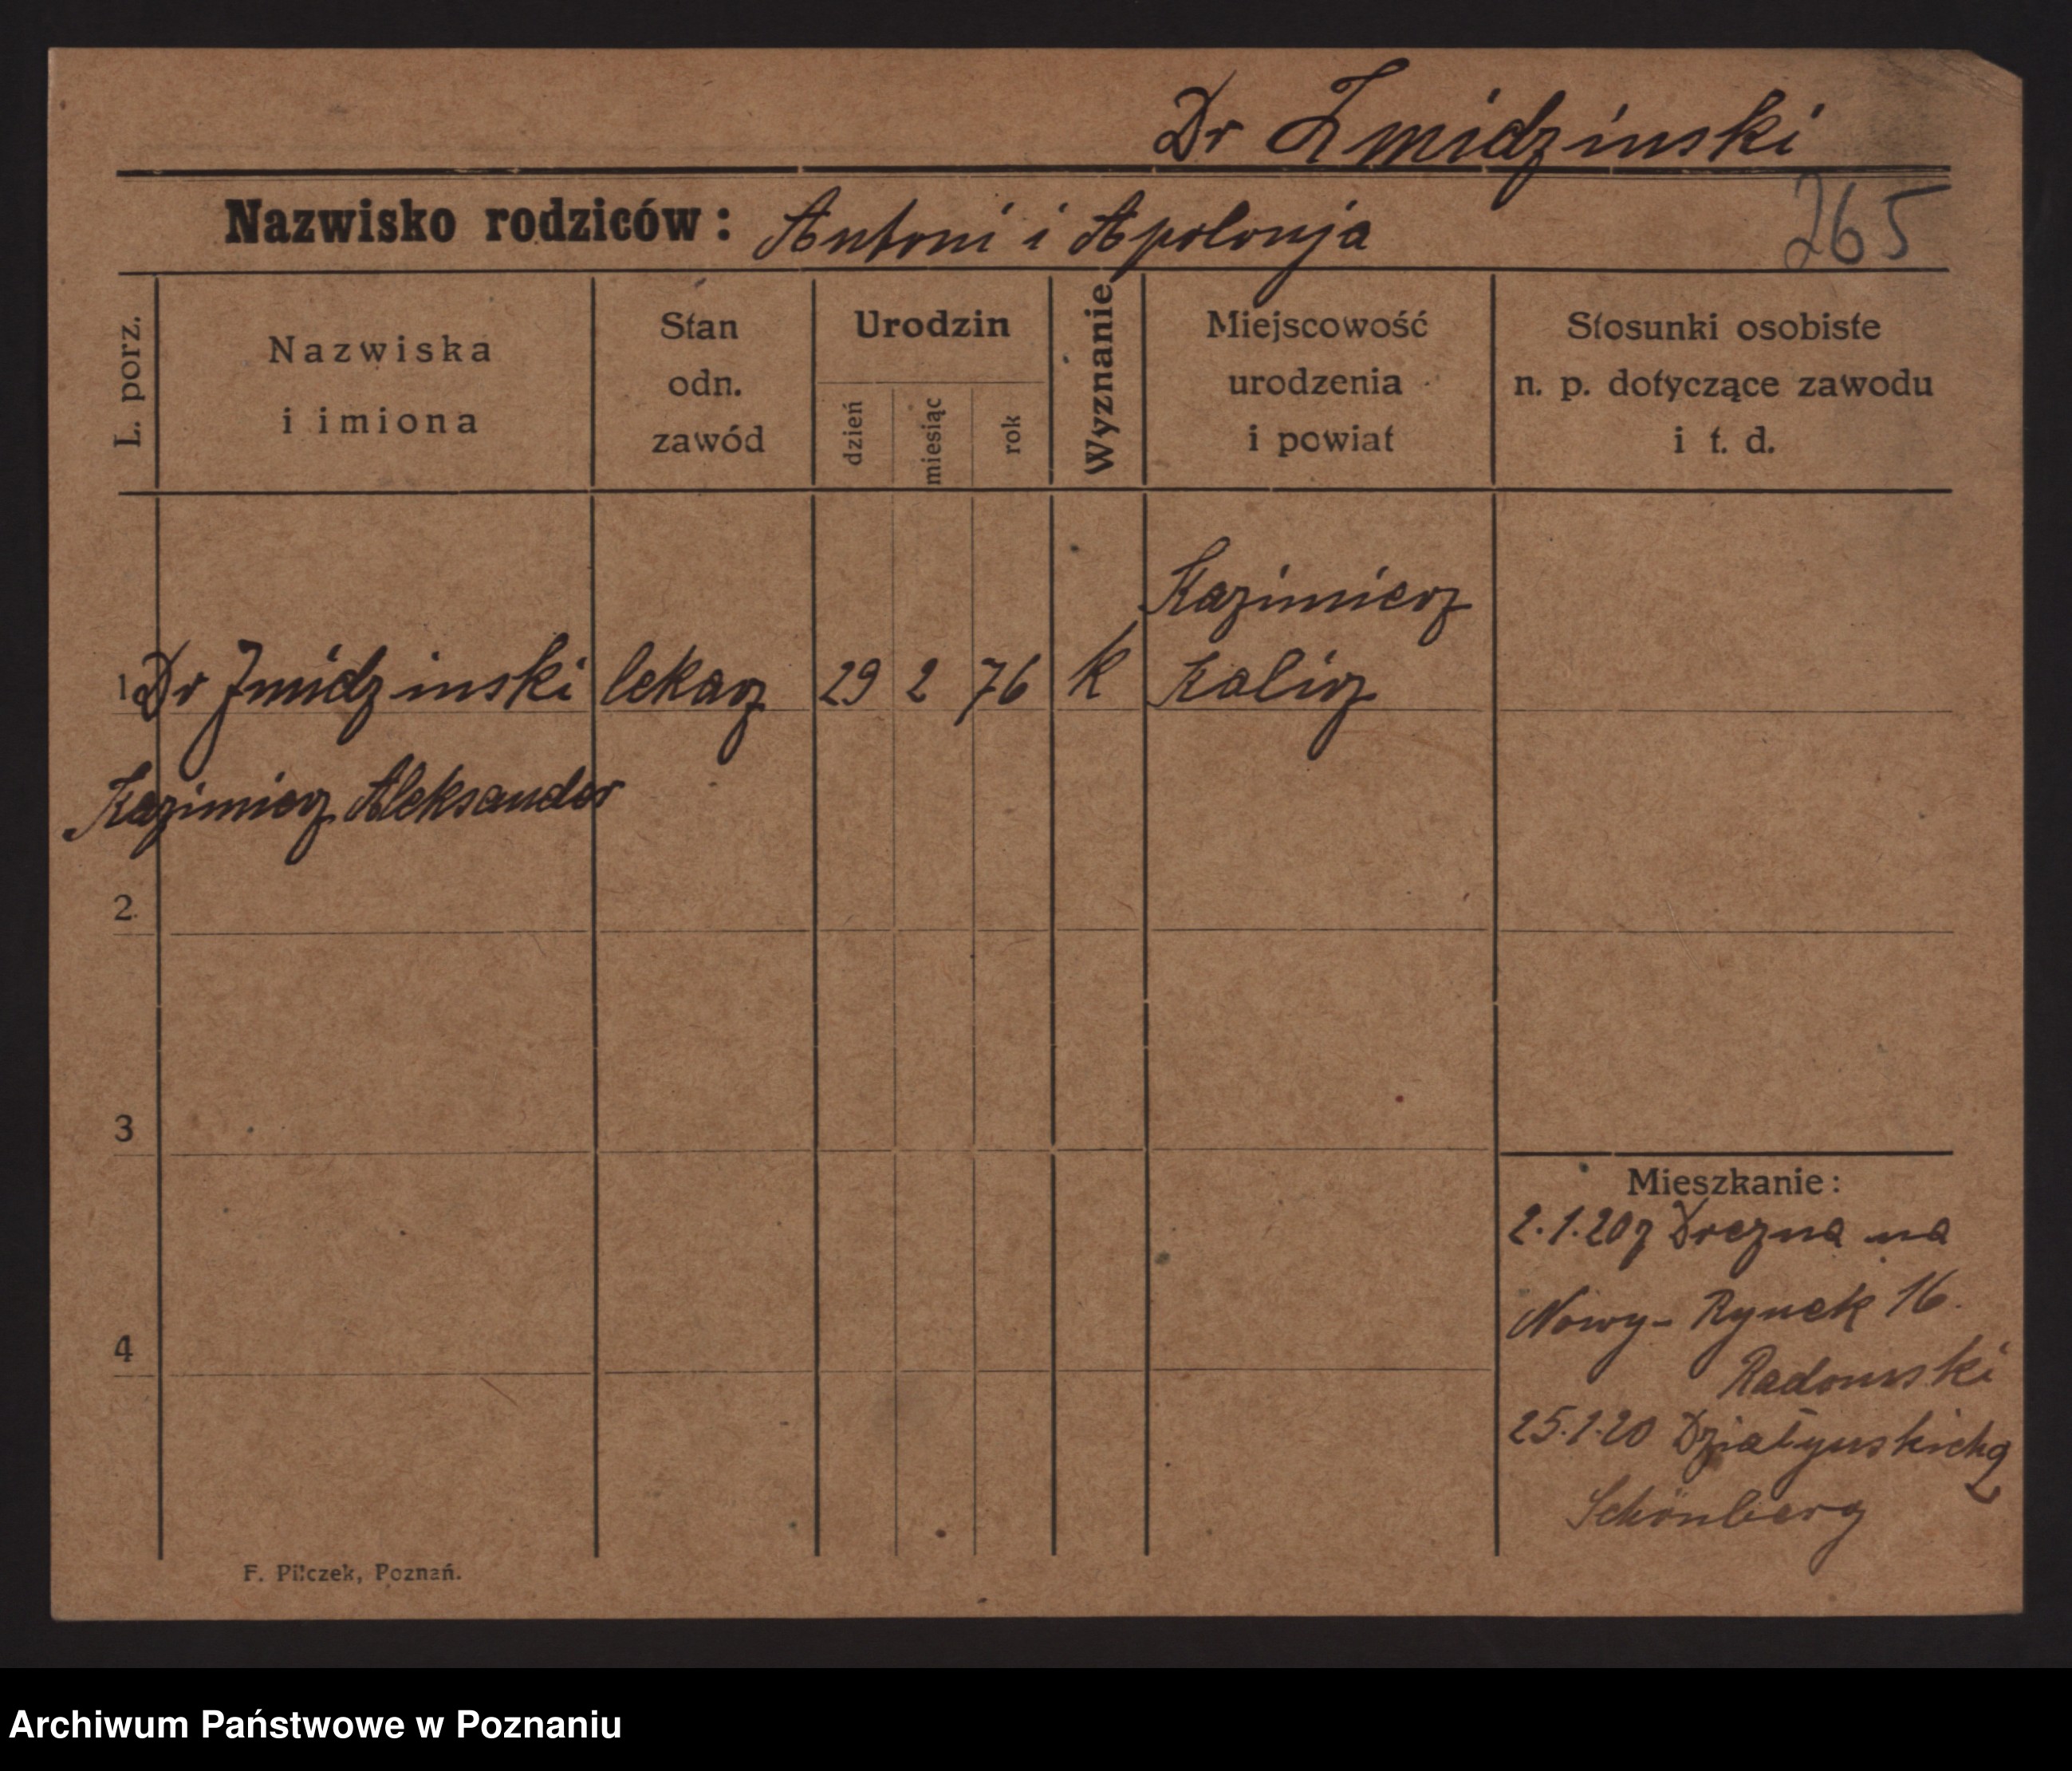 Dr Żmidzinski
Nazwisko rodziców: Antoni i Apolonja
265
L. porz.
Nazwiska
i imiona
Stan
odn.
zawód
Urodzin
dzień
miesiąc
rok
Wyznanie
Miejscowość
urodzenia
i powiat
Stosunki osobiste
n. p. dotyczące zawodu
i t. d.
Kazimierz
1 Dr Żmidzinski lekarz 29 2 76 k Kalisz
Kazimierz Aleksander
2.
3
4
Mieszkanie:
2.1.20 z Drezna na
Nowy-Rynek 16.
Radomski
25.1.20 Działyńskich 9
Schönberg
F. Pilczek, Poznań.
Archiwum Państwowe w Poznaniu